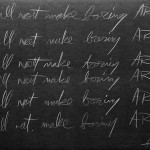 ll not make boring AR
ll not make boring AR
ll not make boring AR
ll not make boring AR
ll not make boring AR
ll not make boring AR